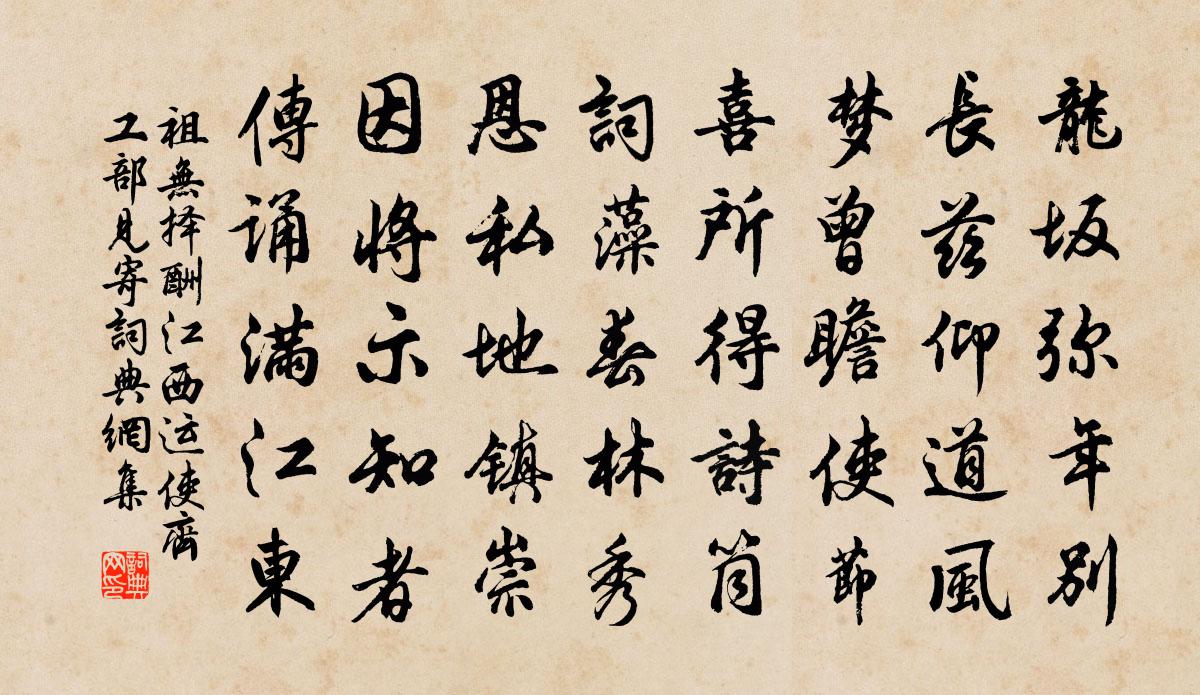 龍坂弥年别
長兹仰道風
梦曾瞻使節
喜所得詩筒
詞藻春林秀
恩私地鎮崇
因將示知者
傳誦满江東
祖無择酬江西运使齊
工部見寄詞典網集
詞典
网印